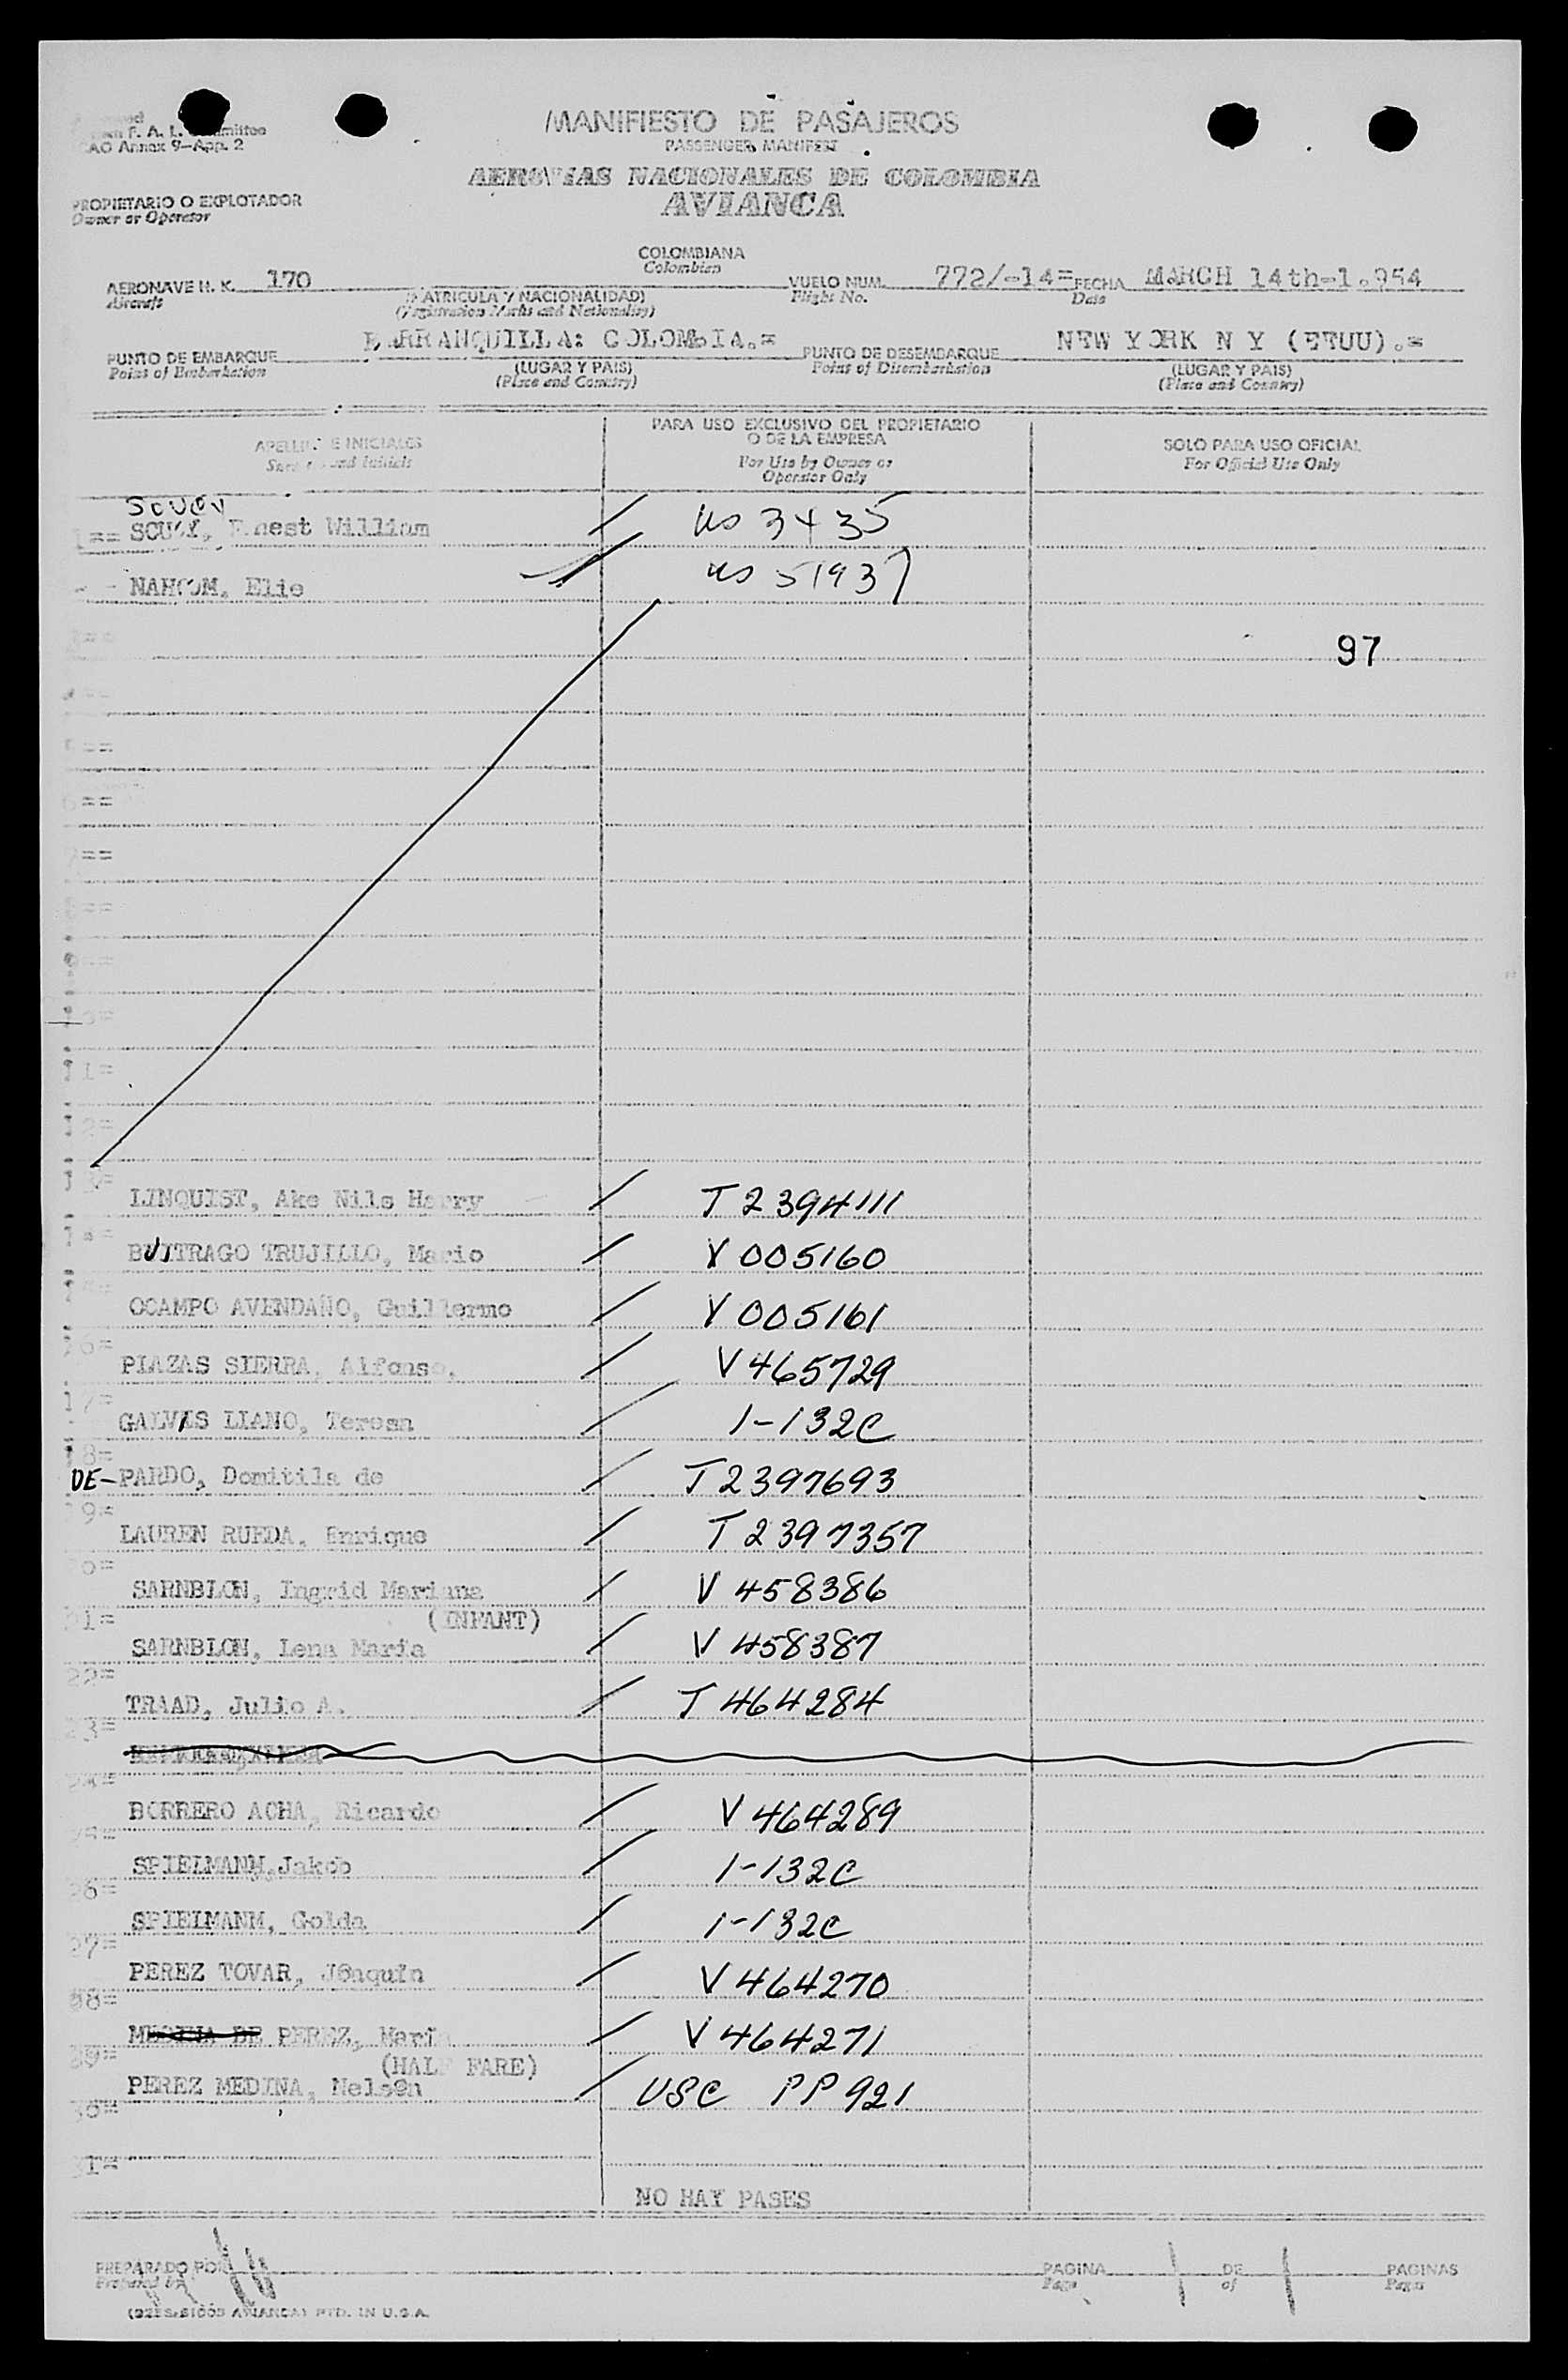 F. A. L. Committee
ICAO Annex 9—App. 2
MANIFIESTO DE PASAJEROS
PASSENGER MANIFEST
AEROVIAS NACIONALES DE COLOMBIA
AVIANCA
PROPIETARIO O EXPLOTADOR
Owner or Operator
COLOMBIANA
Colombian
AERONAVE H. K. 170 VUELO NUM. 772/-14= FECHA MARCH 14th-1.954
Aircraft (MATRICULA Y NACIONALIDAD) Flight No. Date
(Registration Marks and Nationality)
PUNTO DE EMBARQUE BARRANQUILLA: COLOMBIA.= PUNTO DE DESEMBARQUE NEW YORK N Y (EEUU).=
Point of Embarkation (LUGAR Y PAIS) Point of Disembarkation (LUGAR Y PAIS)
(Place and Country) (Place and Country)
APELLIDO E INICIALES PARA USO EXCLUSIVO DEL PROPIETARIO O DE LA EMPRESA SOLO PARA USO OFICIAL
Surname and Initials For Use by Owner or Operator Only For Official Use Only
1== Ernest William US 3435
NAHOUM, Elie US 51937
97
5==
6==
7==
8==
9==
10=
11=
12=
13=
LINQUIST, Ake Nils Harry T 2394111
BUITRAGO TRUJILLO, Mario V 005160
OCAMPO AVENDAÑO, Guillermo V 005161
16=
PLAZAS SIERRA, Alfonso. V 465729
17=
GALVIS LLANO, Teresa 1-132C
18=
DE- PARDO, Domitila de T 2397693
19=
LAUREN RUEDA, Enrique T 2397357
20=
SARNBLON, Ingrid Mariana V 458386
21= (INFANT)
SARNBLON, Lena Maria V 458387
22=
TRAAD, Julio A. T 464284
23=
24=
BORRERO ACHA, Ricardo V 464289
25=
SPIELMANN, Jakob 1-132C
26=
SPIELMANN, Golda 1-132C
27=
PEREZ TOVAR, Joaquín V 464270
28=
MEDINA DE PEREZ, María V 464271
29= (HALF FARE)
PEREZ MEDINA, Nelson USC PP 921
30=
31=
NO HAY PASES
PREPARADO POR PAGINA 1 DE 1 PAGINAS
Prepared by Page of Pages
AVIANCA) PTD. IN U.S.A.